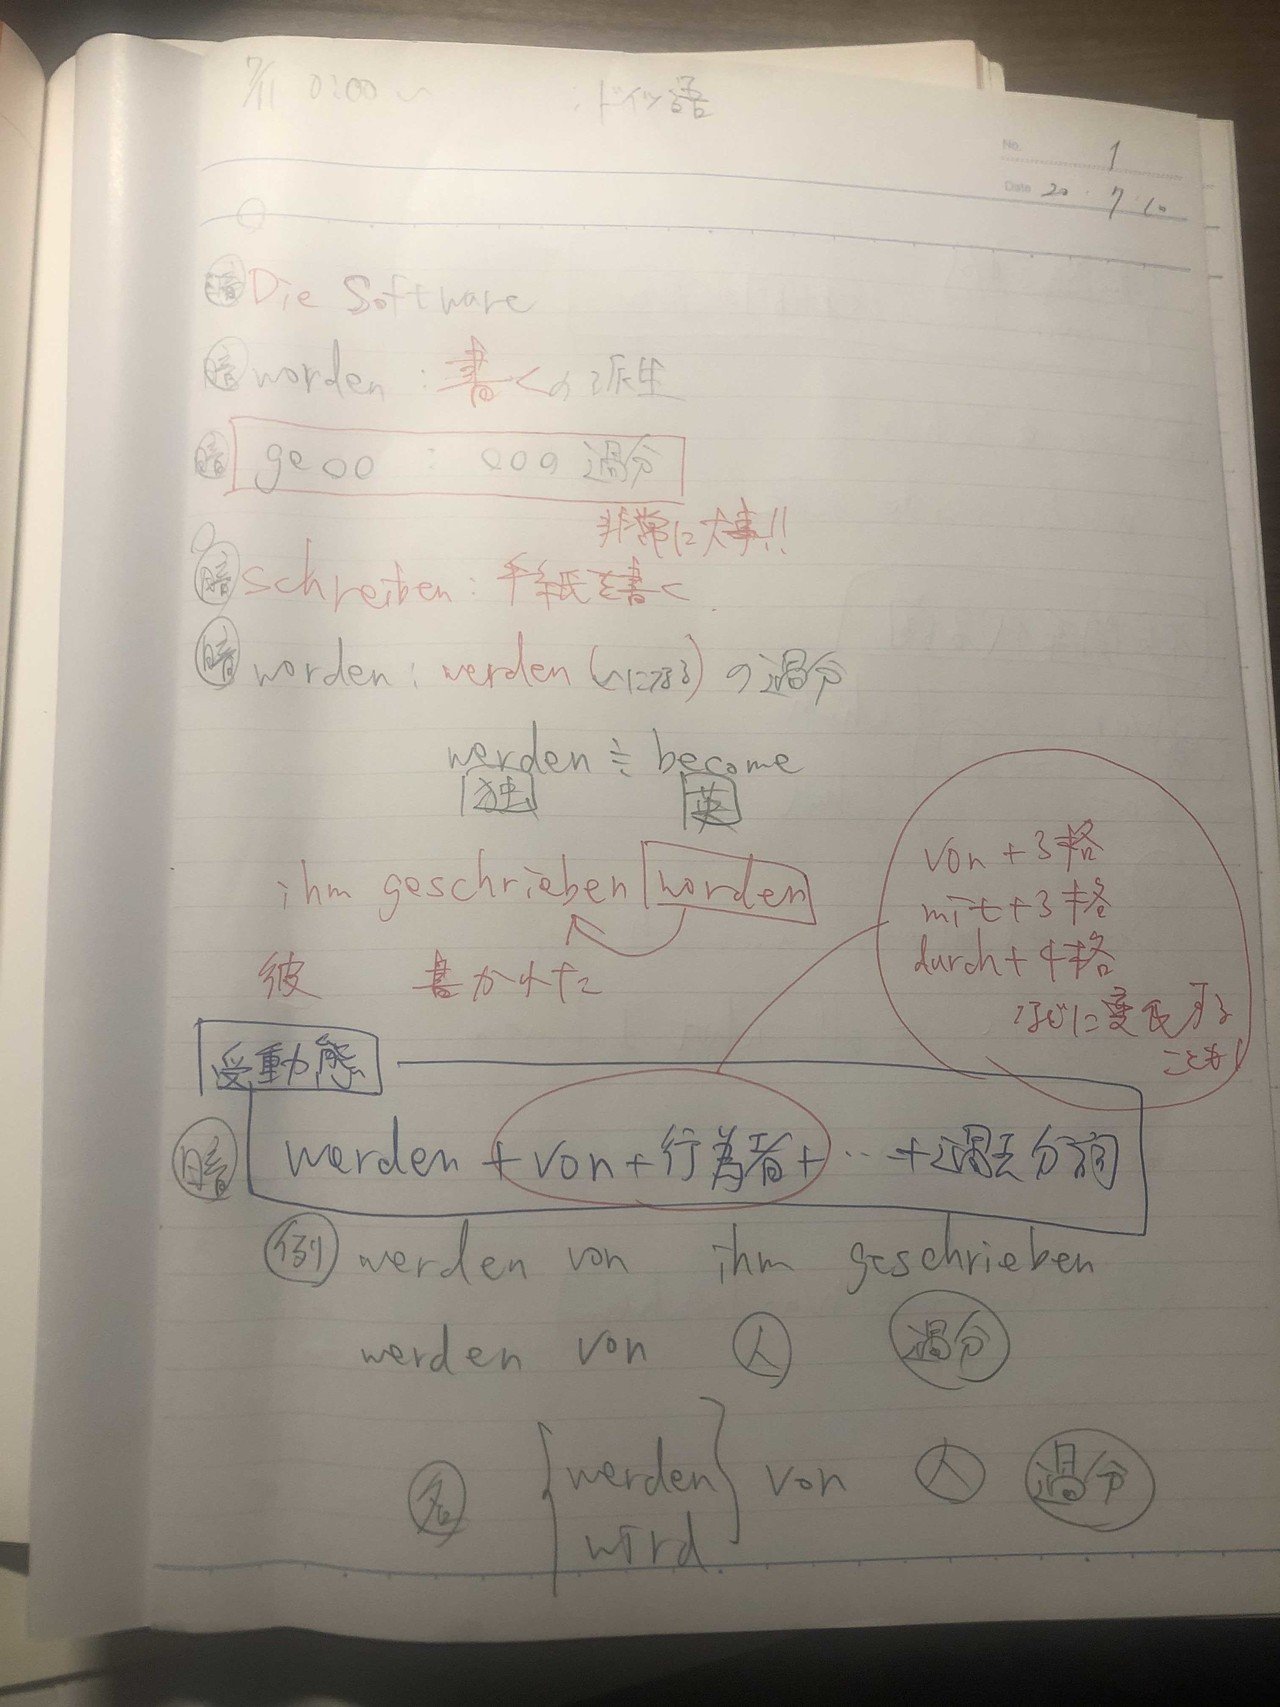 7/11 0:00〜 :ドイツ語
No. 1
Date 20・7・10
暗 Die Software
暗 worden : 書くの派生
暗 ge○○ : ○○の過分
非常に大事!!
暗 schreiben : 手紙を書く
暗 worden : werden (〜になる) の過分
werden ≒ become
独 英
ihm geschrieben worden
彼 書かれた
von + 3格
mit + 3格
durch + 4格
などに変化する
ことも!
受動態
暗 werden + von + 行為者 + … + 過去分詞
例 werden von ihm geschrieben
werden von 人 過分
名 { werden } von 人 過分
wird